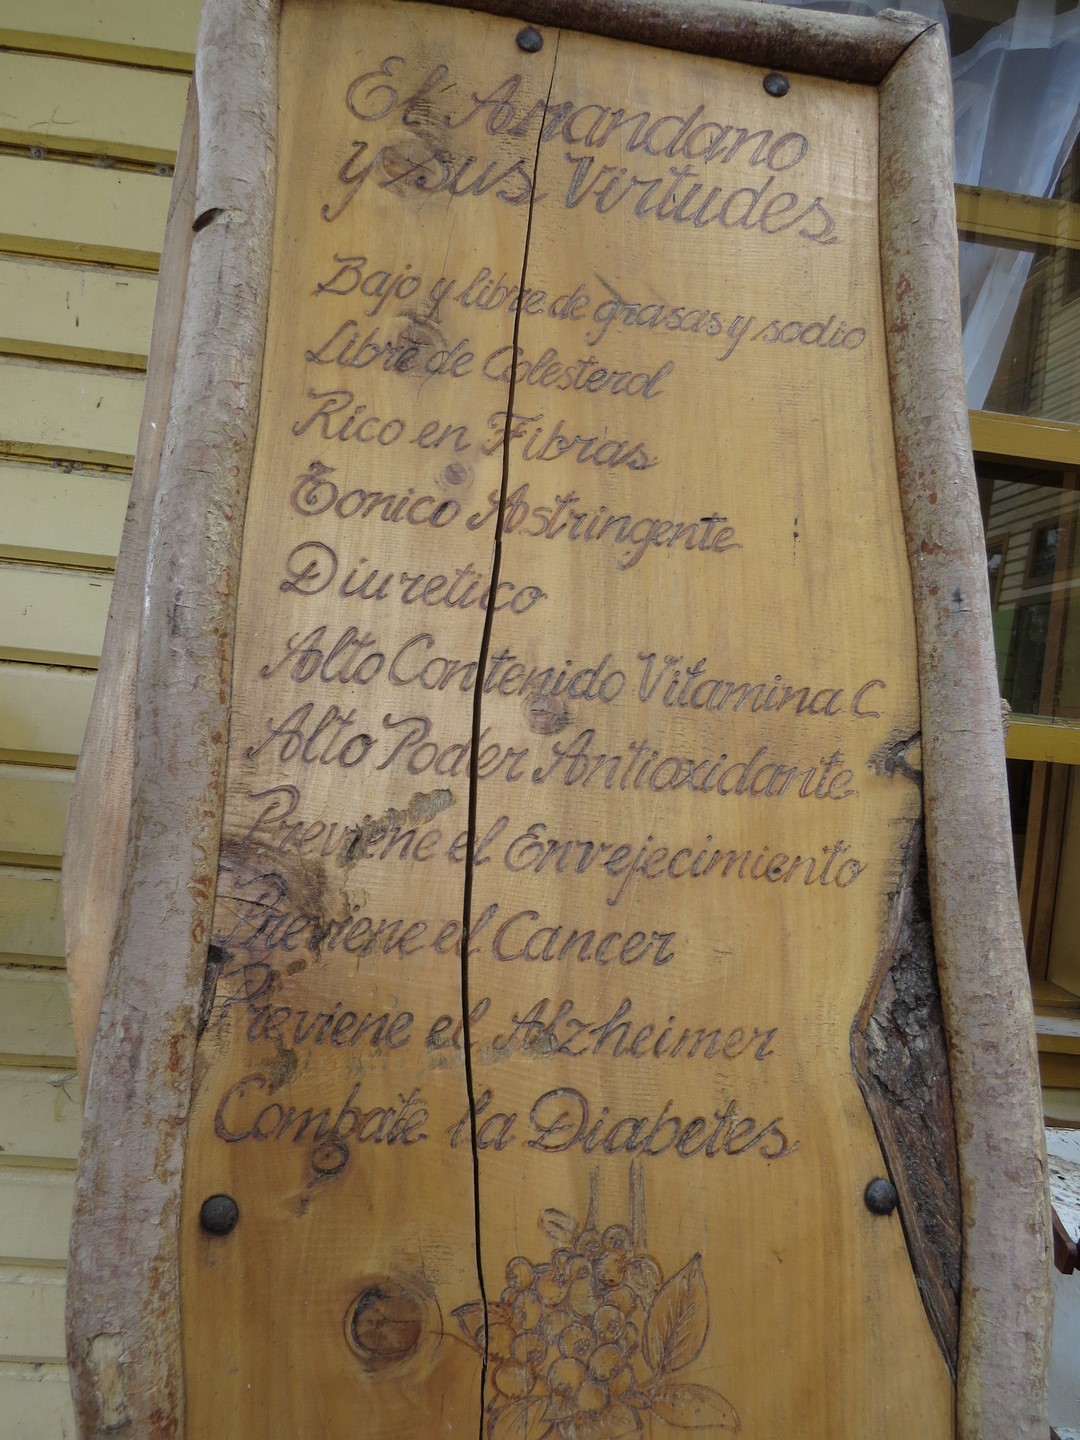 El Arrandano
y sus Virtudes
Bajo y libre de grasas y sodio
Libre de Colesterol
Rico en Fibras
Tonico Astringente
Diuretico
Alto Contenido Vitamina C
Alto Poder Antioxidante
Previene el Envejecimiento
Previene el Cancer
Previene el Alzheimer
Combate la Diabetes